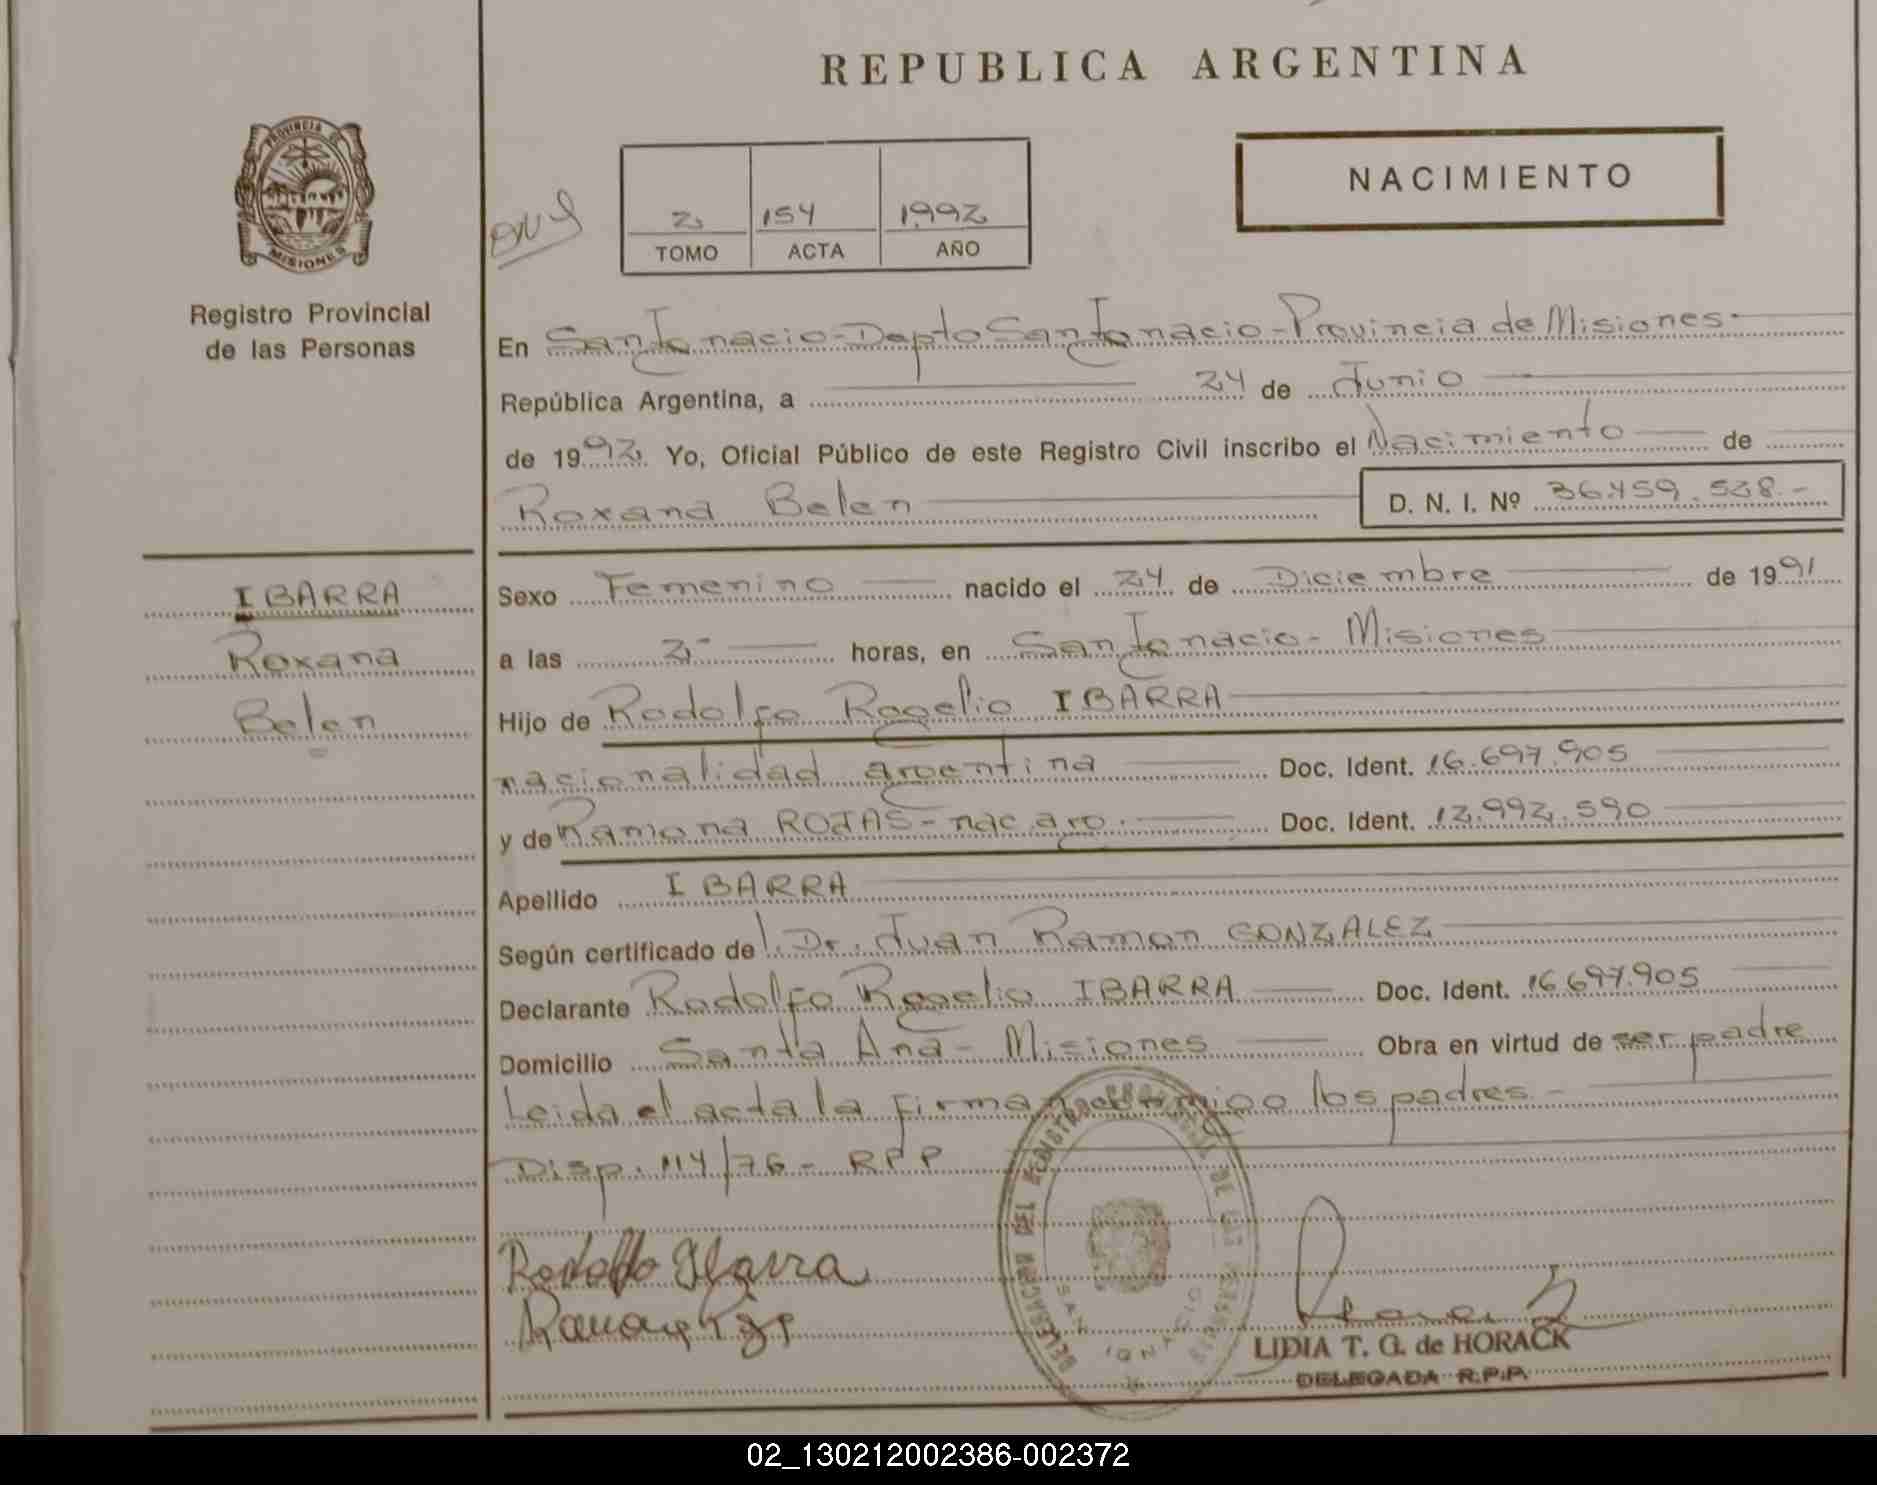 REPUBLICA ARGENTINA
PROVINCIA DE
MISIONES
Registro Provincial
de las Personas
NACIMIENTO
2 154 1992
TOMO ACTA AÑO
En San Ignacio - Depto San Ignacio - Provincia de Misiones -
República Argentina, a 24 de Junio
de 1992 Yo, Oficial Público de este Registro Civil inscribo el Nacimiento de
Roxana Belen D. N. I. Nº 36.459.538.-
IBARRA
Roxana
Belen
Sexo Femenino nacido el 24 de Diciembre de 1991
a las 2- horas, en San Ignacio - Misiones
Hijo de Rodolfo Rogelio IBARRA
nacionalidad argentina Doc. Ident. 16.697.905
y de Ramona ROJAS - nac. arg. Doc. Ident. 12.992.590
Apellido IBARRA
Según certificado de Dr. Juan Ramon GONZALEZ
Declarante Rodolfo Rogelio IBARRA Doc. Ident. 16.697.905
Domicilio Santa Ana - Misiones Obra en virtud de ser padre
Leida el acta la firman conmigo los padres -
Disp. 114/76 - RPP
Rodolfo Ibarra
DELEGACION DEL REGISTRO PROVINCIAL DE LAS PERSONAS
SAN IGNACIO
LIDIA T. G. de HORACK
DELEGADA R.P.P.
02_130212002386-002372